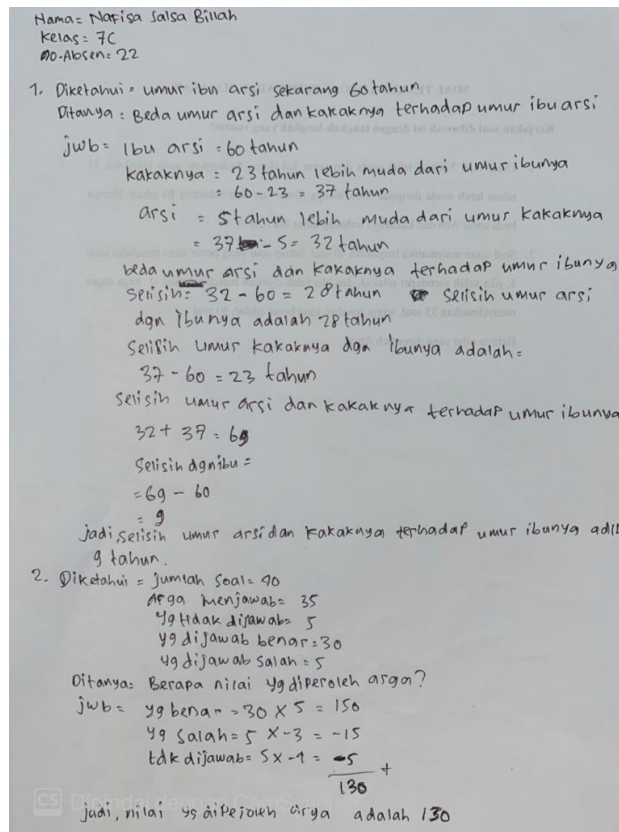 Nama = Nafisa Salsa Billah
Kelas = 7C
No-Absen = 22
1. Diketahui = umur ibu arsi sekarang 60 tahun
Ditanya : Beda umur arsi dan kakaknya terhadap umur ibu arsi
jwb = Ibu arsi = 60 tahun
kakaknya = 23 tahun lebih muda dari umur ibunya
= 60 - 23 = 37 tahun
arsi = 5 tahun lebih muda dari umur kakaknya
= 37 - 5 = 32 tahun
beda umur arsi dan kakaknya terhadap umur ibunya
Selisih = 32 - 60 = 28 tahun selisih umur arsi
dgn ibunya adalah 28 tahun
Selisih umur kakaknya dgn ibunya adalah =
37 - 60 = 23 tahun
Selisih umur arsi dan kakaknya terhadap umur ibunya
32 + 37 = 69
Selisih dgn ibu =
= 69 - 60
= 9
jadi, selisih umur arsi dan kakaknya terhadap umur ibunya adl
9 tahun.
2. Diketahui = jumlah soal = 40
Arga menjawab = 35
yg tidak dijawab = 5
yg dijawab benar = 30
yg dijawab salah = 5
Ditanya = Berapa nilai yg diperoleh arga?
jwb = yg benar = 30 x 5 = 150
yg salah = 5 x -3 = -15
tdk dijawab = 5 x -1 = -5
+
130
jadi, nilai yg diperoleh arga adalah 130
CS Dipindai dengan CamScanner